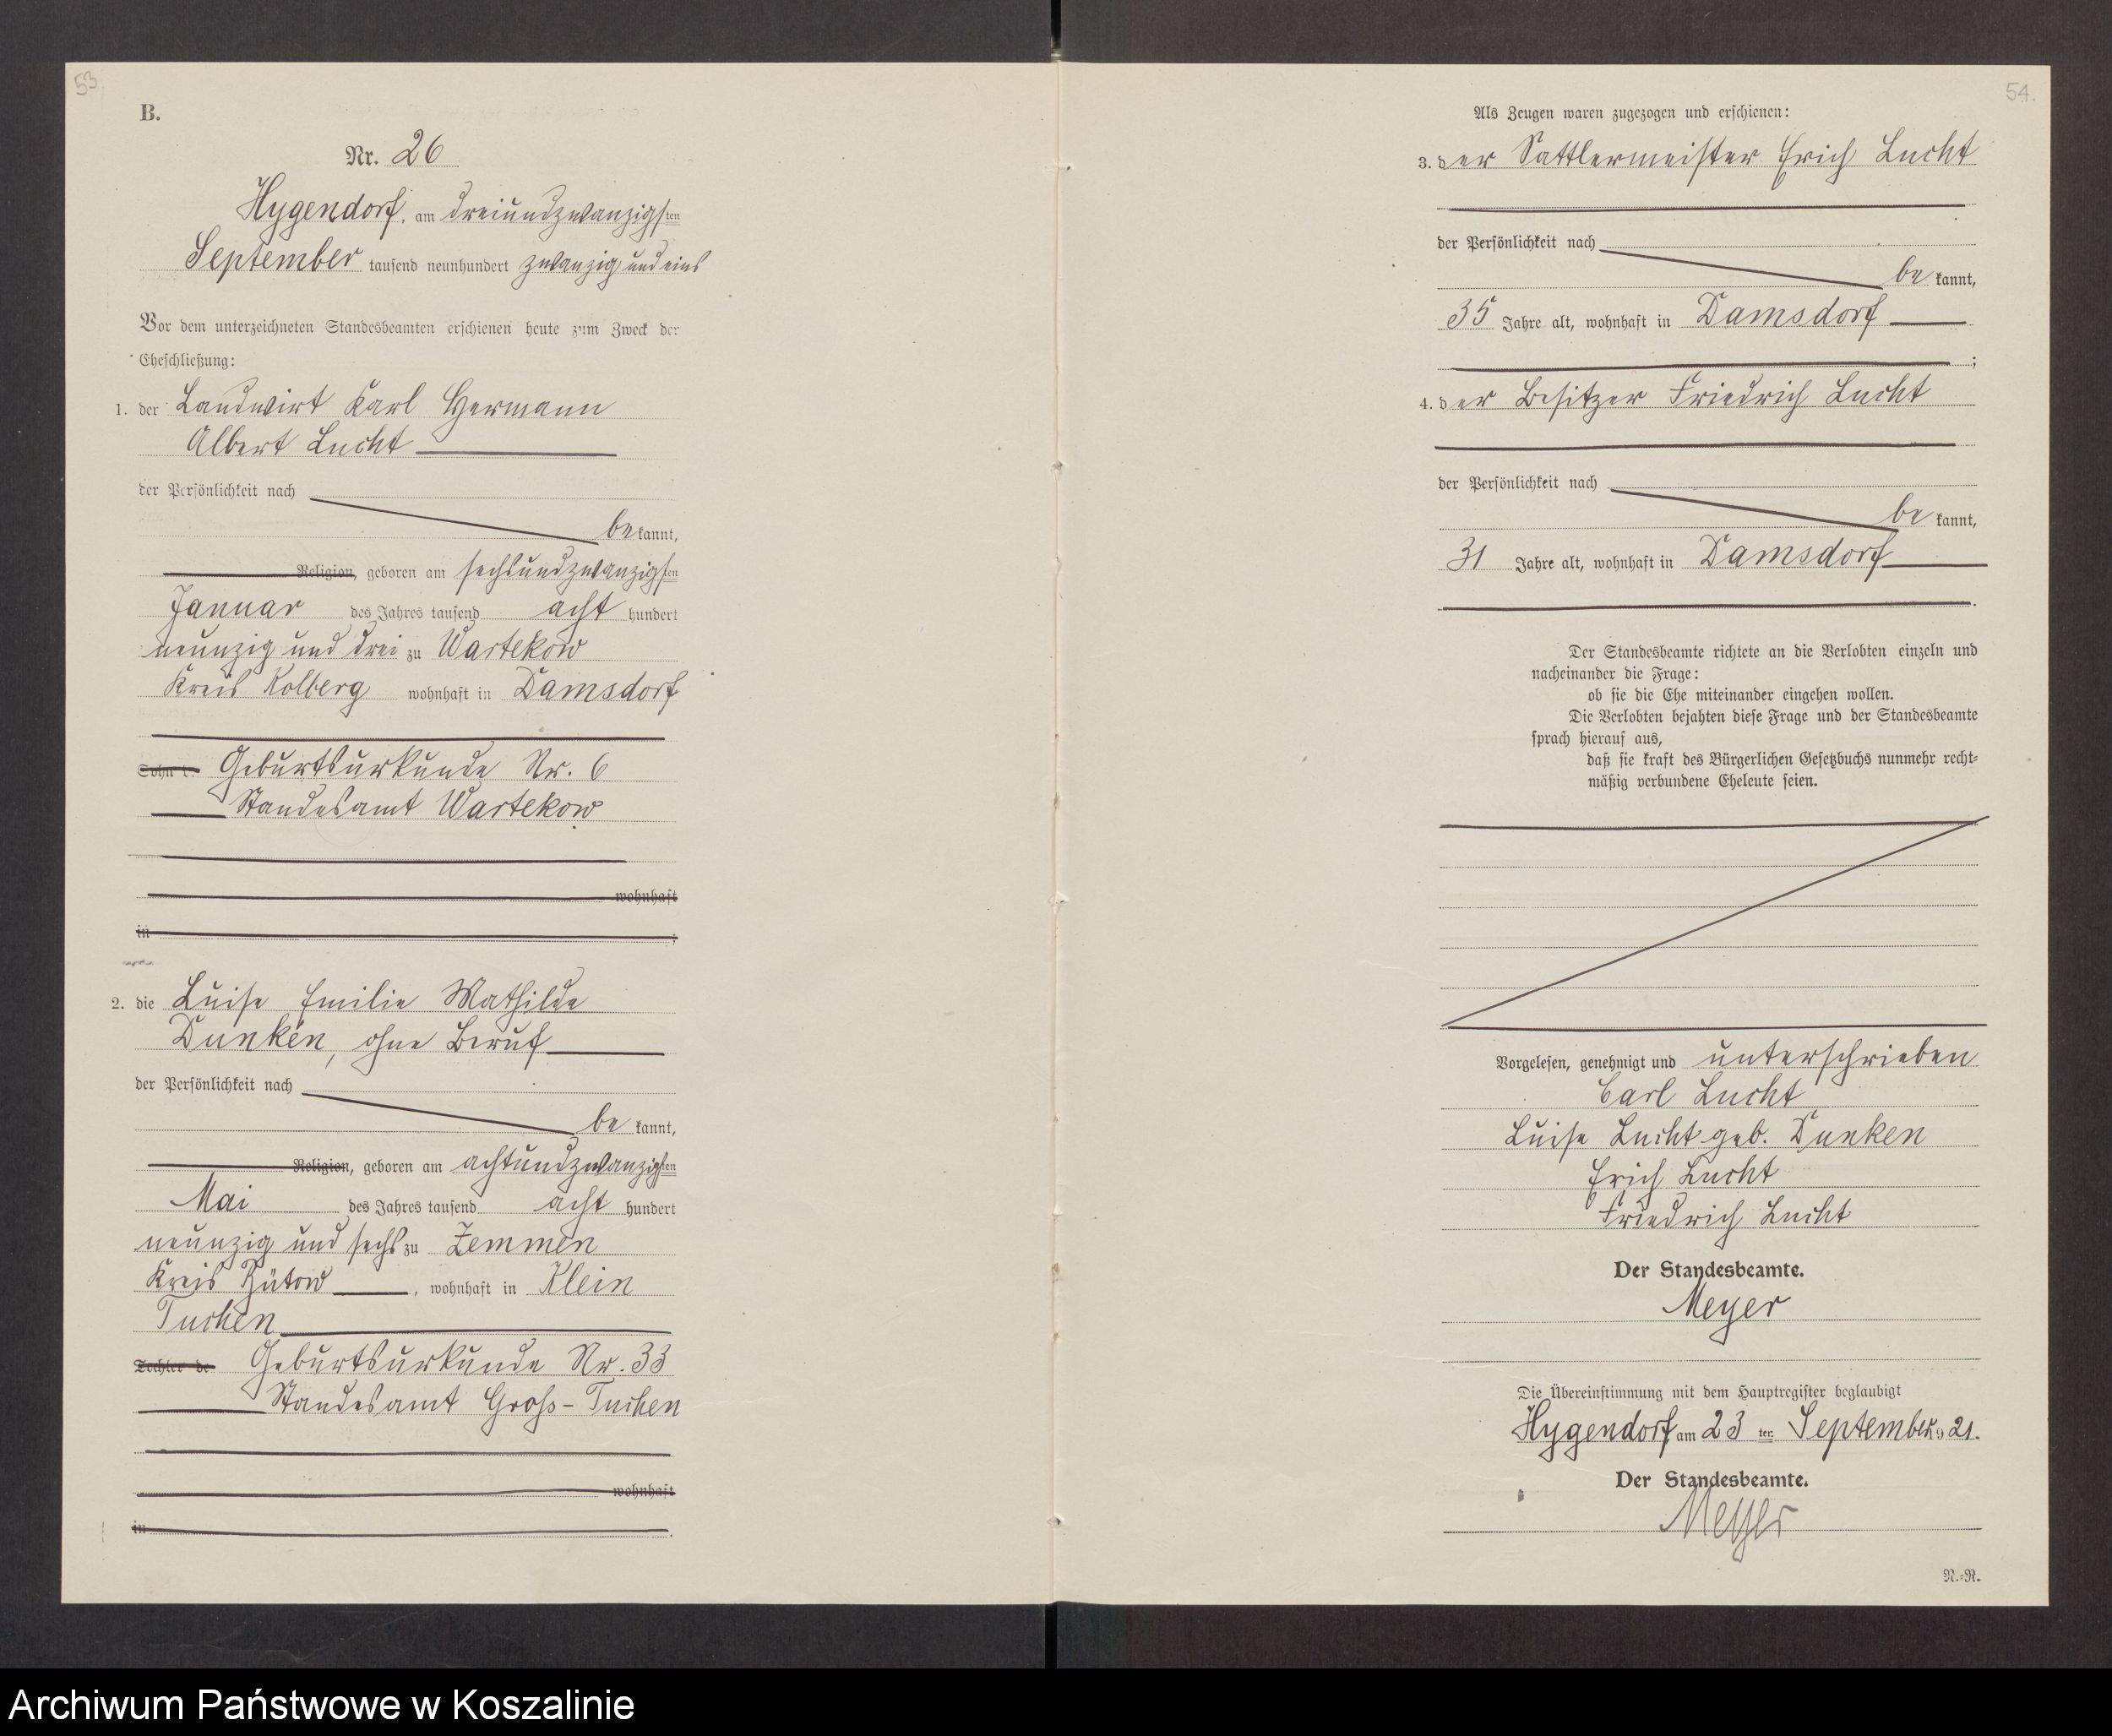 53.
B.
Nr. 26
Hygendorf, am dreiundzwanzigsten
September tausend neunhundert zwanzig und eins
Vor dem unterzeichneten Standesbeamten erschienen heute zum Zweck der
Eheschließung:
1. der Landwirt Karl Hermann
Albert Lucht
der Persönlichkeit nach
be kannt,
Religion, geboren am sechsundzwanzigsten
Januar des Jahres tausend acht hundert
neunzig und drei zu Wartekow
Kreis Kolberg wohnhaft in Damsdorf
Sohn Geburtsurkunde Nr. 6
Standesamt Wartekow
wohnhaft
in ;
2. die Luise Emilie Mathilde
Dunken, ohne Beruf
der Persönlichkeit nach
be kannt,
Religion, geboren am achtundzwanzigsten
Mai des Jahres tausend acht hundert
neunzig und sechs zu Zemmen
Kreis Bütow, wohnhaft in Klein
Tuchen
Tochter de Geburtsurkunde Nr. 33
Standesamt Gross-Tuchen
wohnhaft
in .
54.
Als Zeugen waren zugezogen und erschienen:
3. der Sattlermeister Erich Lucht
der Persönlichkeit nach
be kannt,
35 Jahre alt, wohnhaft in Damsdorf
;
4. der Besitzer Friedrich Lucht
der Persönlichkeit nach
be kannt,
31 Jahre alt, wohnhaft in Damsdorf
.
Der Standesbeamte richtete an die Verlobten einzeln und
nacheinander die Frage:
ob sie die Ehe miteinander eingehen wollen.
Die Verlobten bejahten diese Frage und der Standesbeamte
sprach hierauf aus,
daß sie kraft des Bürgerlichen Gesetzbuchs nunmehr recht-
mäßig verbundene Eheleute seien.
Vorgelesen, genehmigt und unterschrieben
Carl Lucht
Luise Lucht geb. Dunken
Erich Lucht
Friedrich Lucht
Der Standesbeamte.
Meyer
Die Übereinstimmung mit dem Hauptregister beglaubigt
Hygendorf am 23 ten September 1921.
Der Standesbeamte.
Meyer
N.-R.
Archiwum Państwowe w Koszalinie